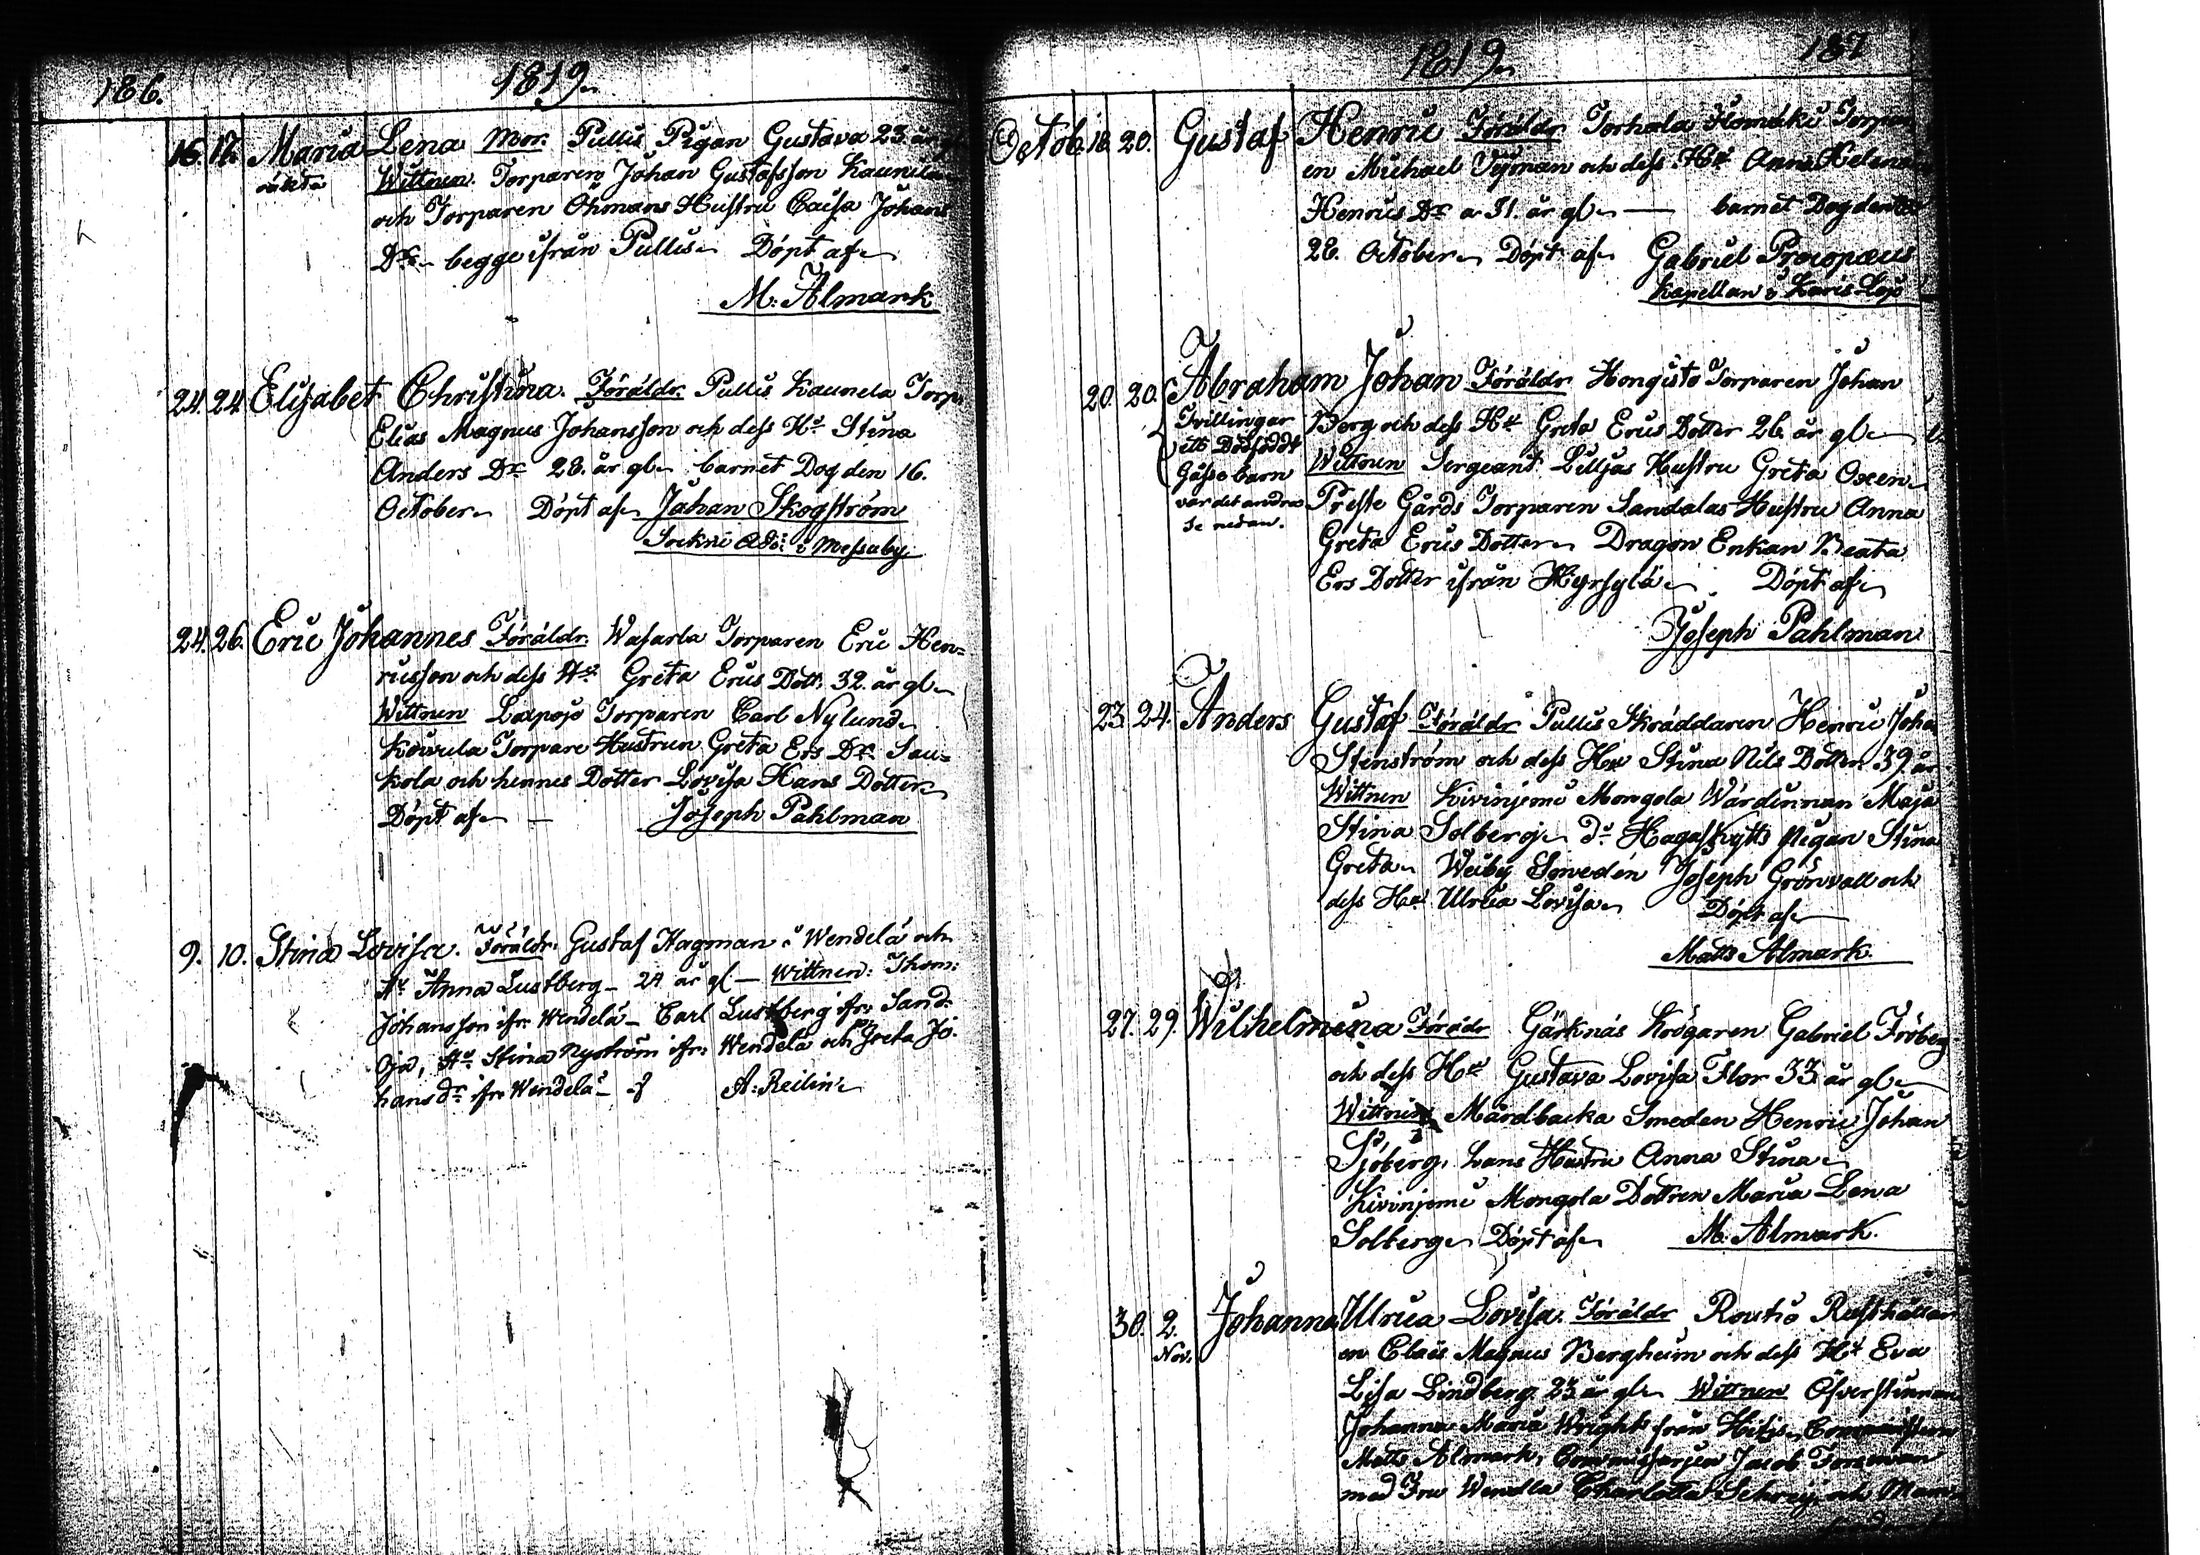 186.
1819.
16. 17. Maria Lena Mor. Pullis Pigan Gustava 23. år
oäkta
Wittnen. Torparen Johan Gustafsson Kaunela
och Torparen Öhmans Hustru Caisa Johans
Dr. begge ifrån Pullis. Döpt af
M: Almark
24. 24. Elisabet Christina. Föräldr. Pullis Kaunela Torp.
Elias Magnus Johansson och dess Hu Stina
Anders Dr 28. år gl. barnet Dog den 16.
October. Döpt af Johan Skogström
Sockne Adj: i Messuby
24. 26. Eric Johannes Föräldr. Wasarla Torparen Eric Hen=
ricsson och dess Hu Greta Erics Dott: 32. år gl.
Wittnen Laxpojo Torparen Carl Nylund
Kouvula Torpare Hustrun Greta Ers Dr. Sau=
kola och hennes Dotter Lovisa Hans Dotter
Döpt af — Joseph Pahlman
9. 10. Stina Lovisa. Föräldr. Gustaf Hagman i Wendelä och
Hu Anna Lustberg — 24 år gl — Wittnen: Thom:
Johansson ifr. Wendelä — Carl Lustberg ifr. Sand:
oja, Hu Stina Nyström ifr: Wendelä och Greta Jo:
hans dr ifr. Wendelä — A: Reilin
1819.
187
Octob. 18. 20. Gustaf Henric Föräldr Torhola Torpar
en Michael Tyman och dess Hu Anna Helena
Henrics Dr a 31. år gl. — barnet Dog den
28. October. Döpt af Gabriel Procopæus
Kapellan i Karis-Lojo
20. 20. Abraham Johan Föräldr Hongisto Torparen Johan
Tvillingar
ett Dödfödt
Gåsse barn
var det andra
se nedan.
Berg och dess Hu Greta Erics Dotter 26. år gl.
Wittnen Sergeant Lilljas Hustru Greta Oxen
Preste Gårds Torparen Sandalas Hustru Anna
Greta Erics Dotter. Dragon Enkan Beata
Ers Dotter ifrån Hyrsylä. Döpt af
Joseph Pahlman
23. 24. Anders Gustaf Föräldr Pullis Skräddaren Henric Joha
Stenström och dess Hu Stina Nils Dotter. 39. år
Wittnen Kivinjemi Mongola Wärdinnan Maja
Stina Solberg. do Pigan Stina
Greta. Weiby Smeden Joseph Grönvall och
dess Hu Ulrica Lovisa. Döpt af
Matts Almark.
27. 29. Wilhelmina Föräldr Gärknäs Krögaren Gabriel Fröberg
och dess Hu Gustava Lovisa Flor 33. år gl.
Wittnen Mårdbacka Smeden Henric Johan
Sjöberg, hans Hustru Anna Stina
Kivinjemi Mongola Dottren Maria Lena
Solberg. Döpt af M. Almark.
30. 2. Johanna Ulrica Lovisa. Föräldr Routio Rusthållar
Nov.
en Claës Magnus Bergheim och dess Hu Eva
Lisa Lindberg 23. år gl. Wittnen Öfverstinnan
Johanna Maria Wright från
Matts Almark, Commissarien Jacob Forsman
med Fru Wendla Charlotta och Mam